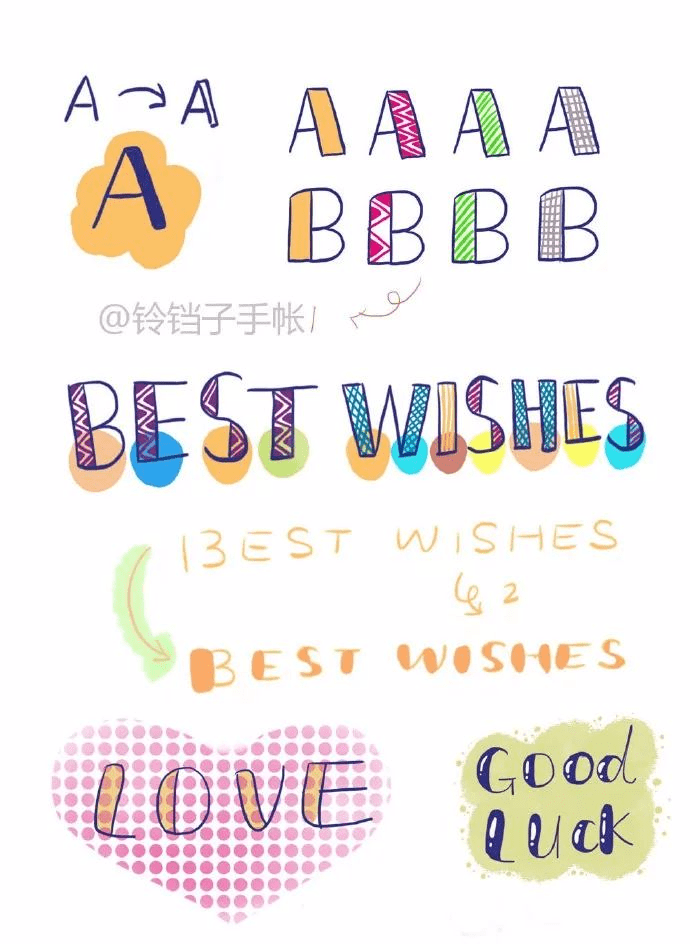 A → A A A A A
A
B B B B
@铃铛子手帐
BEST WISHES
BEST WISHES
2
BEST WISHES
LOVE
GOOD
LUCK